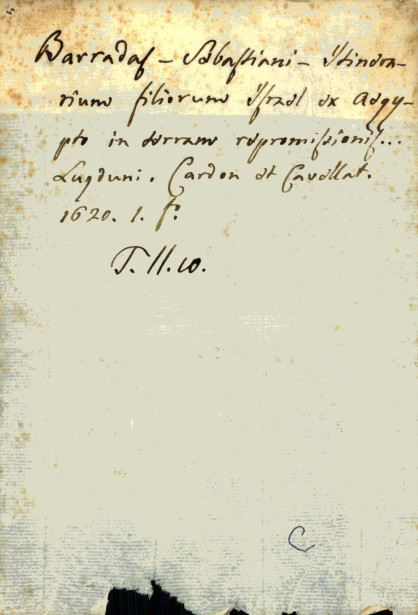 Barradas - Sebastiani - Itinera-
rium filiorum Israel ex Aegy-
pto in terram repromissionis...
Lugduni. Cardon et Cavellat.
1620. 1. fo.
T. II. 10.
C